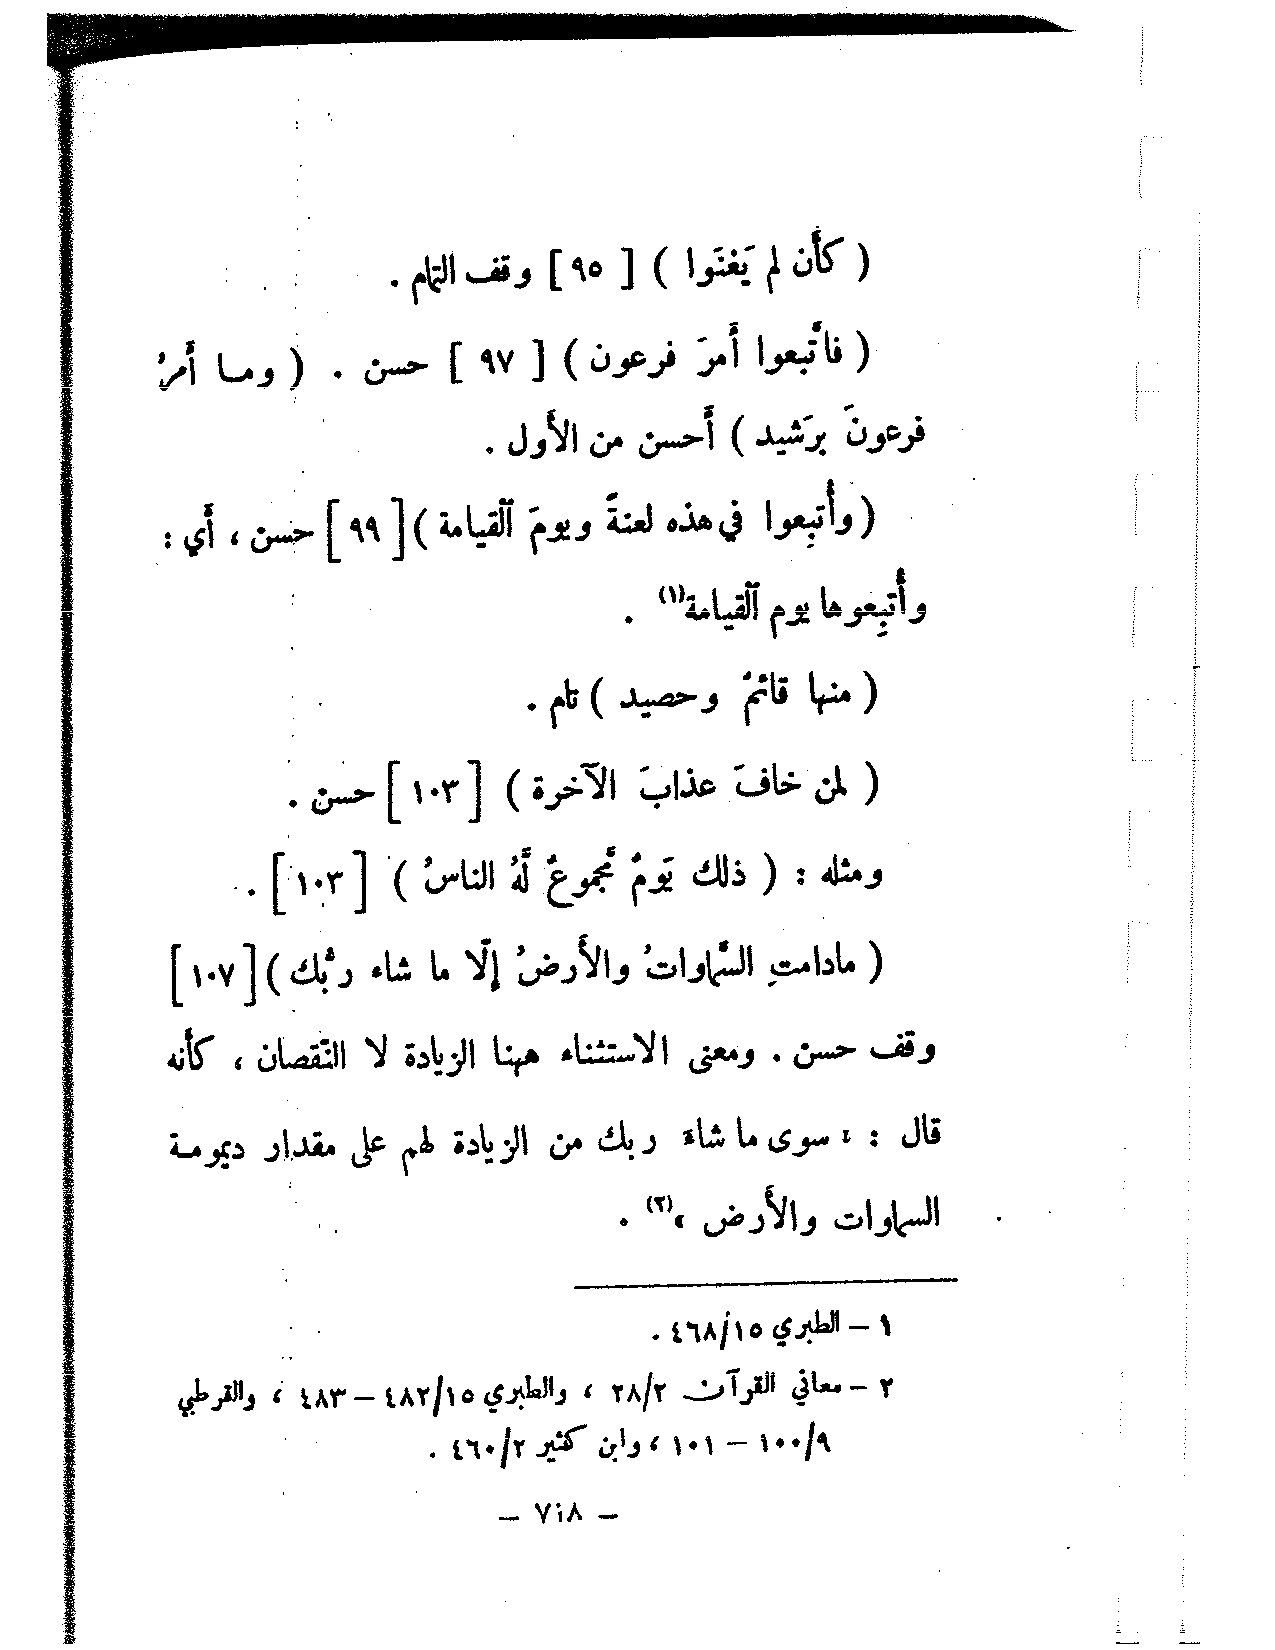 ( كأَن لم يَغنَوا ) [ ٩٥ ] وقف التمام .
( فاتَّبعوا أَمرَ فرعون ) [ ٩٧ ] حسن . ( وما أَمرُ
فرعونَ برَشيد ) أَحسن من الأَول .
( وأُتبِعوا في هذه لعنةً ويومَ ٱلقيامة ) [ ٩٩ ] حسن ، أَي :
وأُتبِعوها يوم ٱلقيامة(١) .
( منها قائمٌ وحصيد ) تام .
( لمن خافَ عذابَ الآخرة ) [ ١٠٣ ] حسن .
ومثله : ( ذلك يَومٌ مَّجموعٌ لَّهُ الناسُ ) [ ١٠٣ ] .
( مادامتِ السَّماواتُ والأَرضُ إلَّا ما شاء ربُّك ) [ ١٠٧ ]
وقف حسن . ومعنى الاستثناء ههنا الزيادة لا النّقصان ، كأَنه
قال : « سوى ما شاءَ ربك من الزيادة لهم على مقدار ديمومة
السماوات والأَرض »(٢) .
١ – الطبري ٤٦٨/١٥ .
٢ – معاني القرآن ٢٨/٢ ، والطبري ٤٨٢/١٥ – ٤٨٣ ، والقرطبي
١٠٠/٩ – ١٠١ ، وابن كثير ٤٦٠/٢ .
– ٧١٨ –